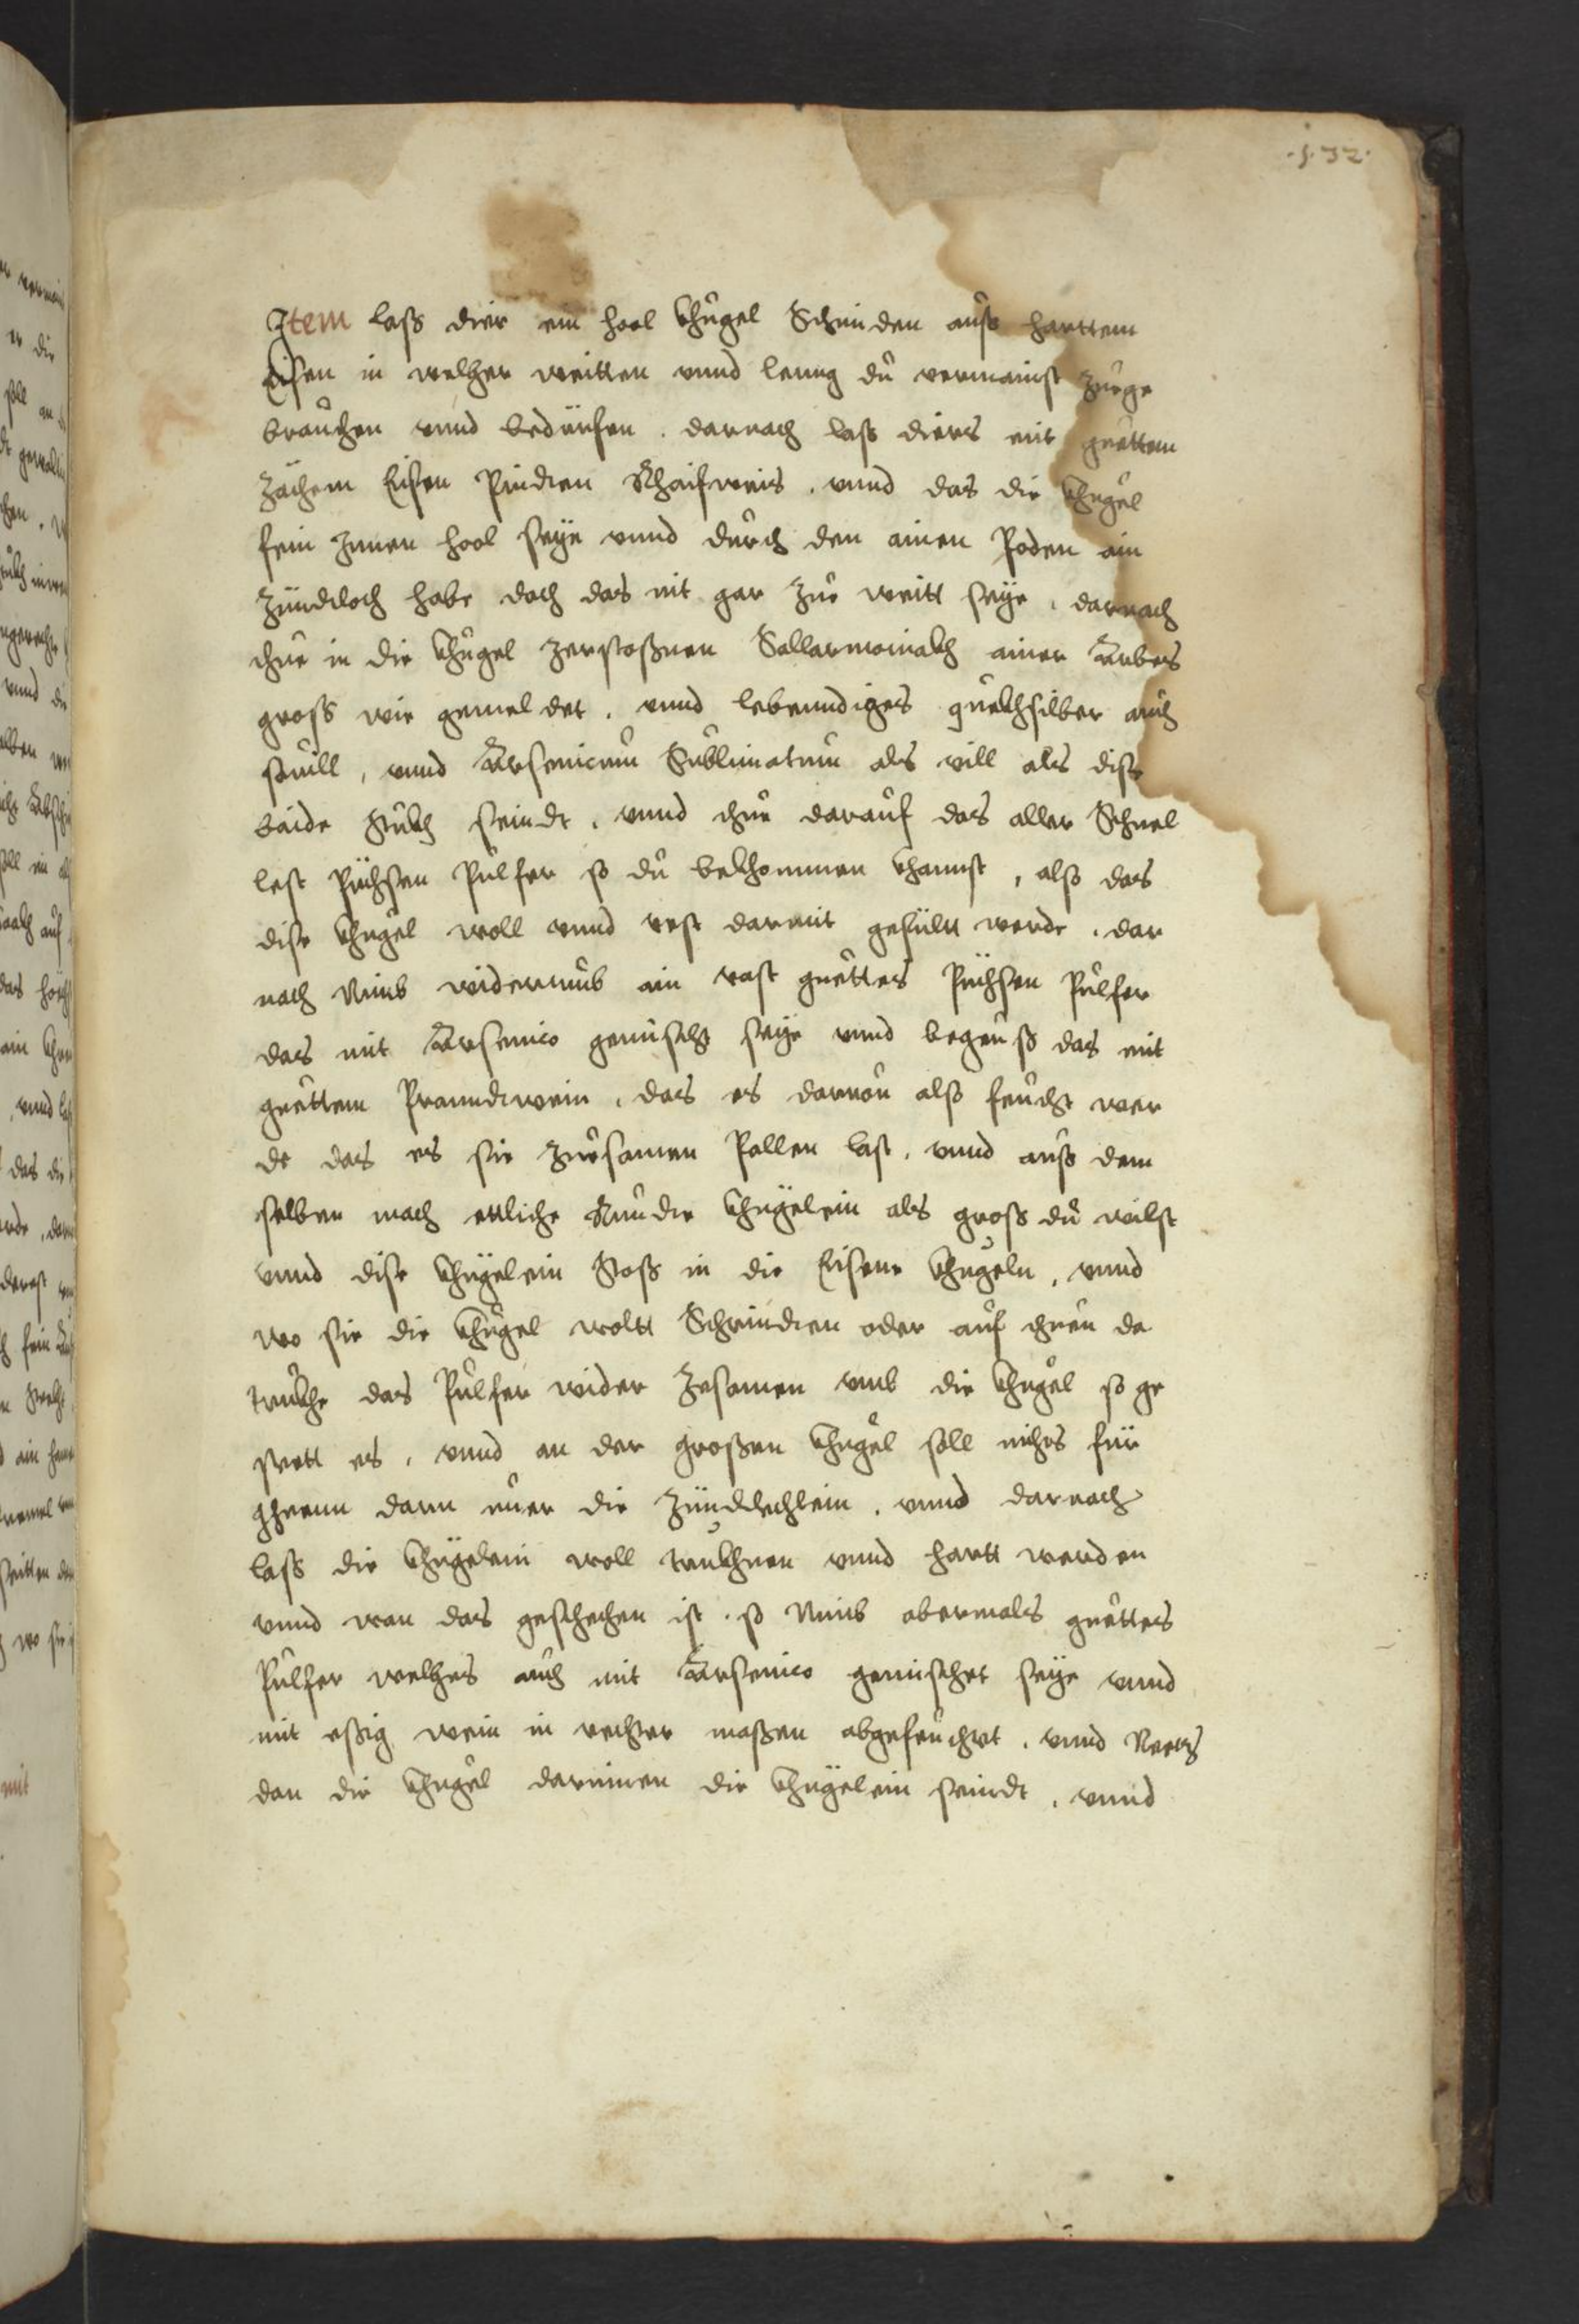 .132.
Item lass dier ein hool khugel Schmiden auss harttem
Eisen in welher weitten vnnd leng du vermainst zuege
brauchen vnnd bedürfen . darnach lass diers mit guettem
zächem Eisen Pinden Rhaifweis . vnnd das die khugel
fein Innen hool seye vnnd durch den ainen Poden ain
zündtloch habe doch das nit gar zue weitt seye . darnach
thue in die khugel zerstossnen Sallarmoniakh ainer Arbes
gross wie gemeldet . vnnd lebenndiges quekhsilber auch
souill , vnnd Arsenicum Sublimatum als vill als dise
baide stukh seindt . vnnd thue darauf das aller Schnel
lest Püchsen Pulfer so du bekhommen khannst , also das
dise khugel woll vnnd vest darmit gefült werde . dar
nach Nimb widerumb ain vast guettes Püchsen Pulfer
das mit Arsenico gemischt seye vnnd begeuss das mit
guettem Pranndtwein . das es daruon also feucht wer
de das es sie zuesamen Pallen last . vnnd auss dem
selben mach ettliche Runde khügelein als gross du wilst
vnnd dise khügelein Stoss in die Eisene khugeln , vnnd
wo sie die khugel woltt Schrinden oder auf thuen da
trukhe das Pulfer wider zesamen vmb die khugel so ge
stett es . vnnd an der grossen khugel soll nichts für
gheenn dann nuer die zündtlechlein . vnnd darnach
lass die khügelein woll trukhnen vnnd hartt werden
vnnd wan das geschechen ist . so Nimb abermals guettes
Pulfer welhes auch mit Arsenico gemischet seye vnnd
mit essig wein in rechter massen abgefeuchtet . vnnd
dan die khugel darinnen die khügelein seindt . vnnd